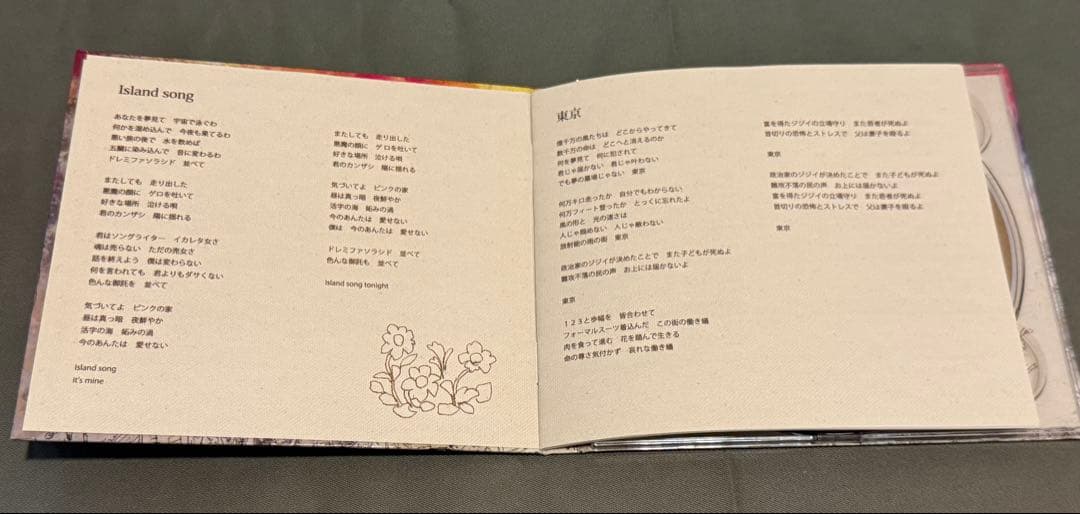 Island song
あなたを夢見て　宇宙で泳ぐわ
何かを溜め込んで　今夜も果てるわ
悪い旅の夜で　水を飲めば
五臓に染み込んで　音に変わるわ
ドレミファソラシド　並べて
またしても　走り出した
悪魔の顔に　ゲロを吐いて
好きな場所　泣ける唄
君のカンザシ　陽に揺れる
君はソングライター　イカレタ女さ
魂は売らない　ただの売女さ
話を終えよう　僕は変わらない
何を言われても　君よりもダサくない
色んな御託を　並べて
気づいてよ　ピンクの家
昼は真っ暗　夜鮮やか
活字の海　妬みの渦
今のあんたは　愛せない
Island song
it's mine
またしても　走り出した
悪魔の顔に　ゲロを吐いて
好きな場所　泣ける唄
君のカンザシ　陽に揺れる
気づいてよ　ピンクの家
昼は真っ暗　夜鮮やか
活字の海　妬みの渦
今のあんたは　愛せない
僕は　今のあんたは　愛せない
ドレミファソラシド　並べて
色んな御託も　並べて
Island song tonight
東京
幾千万の風たちは　どこからやってきて
数千万の命は　どこへと消えるのか
何を夢見て　何に犯されて
君じゃ届かない　君じゃ叶わない
でも夢の墓場じゃない　東京
何万キロ走ったか　自分でもわからない
何万フィート登ったか　とっくに忘れたよ
風の形と　光の速さは
人じゃ掴めない　人じゃ敵わない
放射能の雨の街　東京
政治家のジジイが決めたことで　また子どもが死ぬよ
難攻不落の民の声　お上には届かないよ
東京
１２３と歩幅を　皆合わせて
フォーマルスーツ着込んだ　この街の働き蟻
肉を食って進む　花を踏んで生きる
命の尊さ気付かず　哀れな働き蟻
富を得たジジイの立場守り　また若者が死ぬよ
首切りの恐怖とストレスで　父は妻子を殴るよ
東京
政治家のジジイが決めたことで　また子どもが死ぬよ
難攻不落の民の声　お上には届かないよ
富を得たジジイの立場守り　また若者が死ぬよ
首切りの恐怖とストレスで　父は妻子を殴るよ
東京